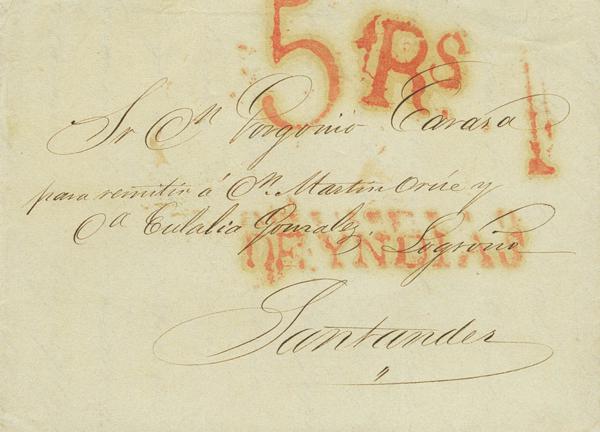 5 Rs
Sr Dn Gorgonio Taraza
para remitir á Dn Martin Orúe y
Da Eulalia Gonzalez, Logroño
DE YNDIAS
Santander